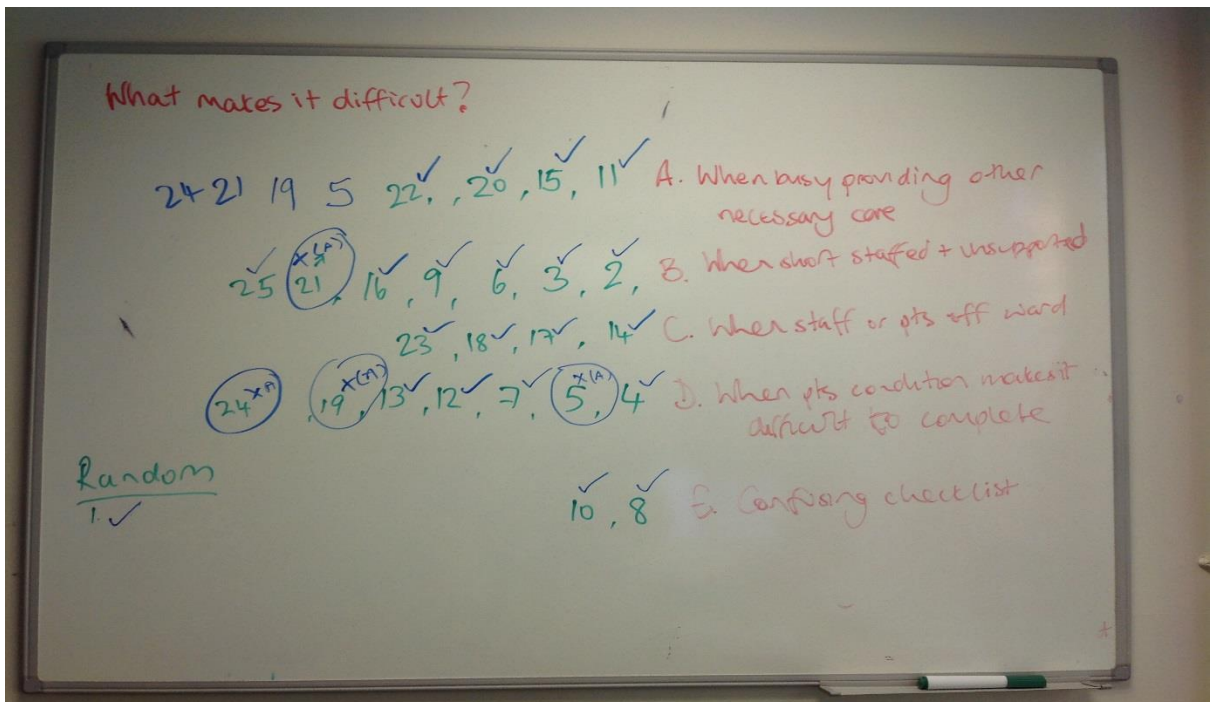 What makes it difficult?
24 21 19 5 22✓, , 20✓, 15✓, 11✓ A. When busy providing other
necessary care
25✓ 21 x(A), 16✓, 9✓, 6✓, 3✓, 2✓, B. When short staffed + unsupported
23✓, 18✓, 17✓, 14✓ C. When staff or pts off ward
24 x(A) , 19 x(A) 13✓, 12✓, 7✓, 5 x(A), 4✓ D. When pts condition makes it
difficult to complete
Random
1. ✓
10✓, 8✓ E. Confusing checklist